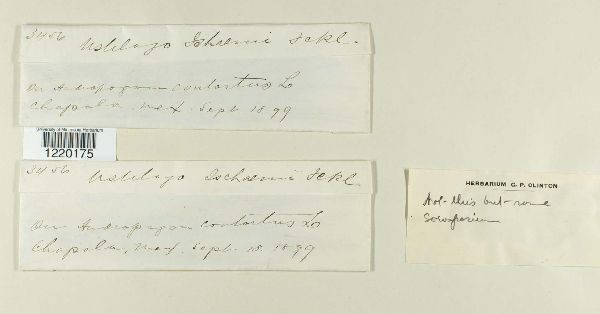 3456
Ustilago Ischaemi Fckl.
On Andropogon contortus L
Chapala, Mex. Sept 18 99
University of Minnesota Herbarium
1220175
3456
Ustilago Ischaemi Fckl
On Andropogon contortus L
Chapala, Mex. Sept. 18. 1899
HERBARIUM G. P. CLINTON
Not this but some
Sorosporium